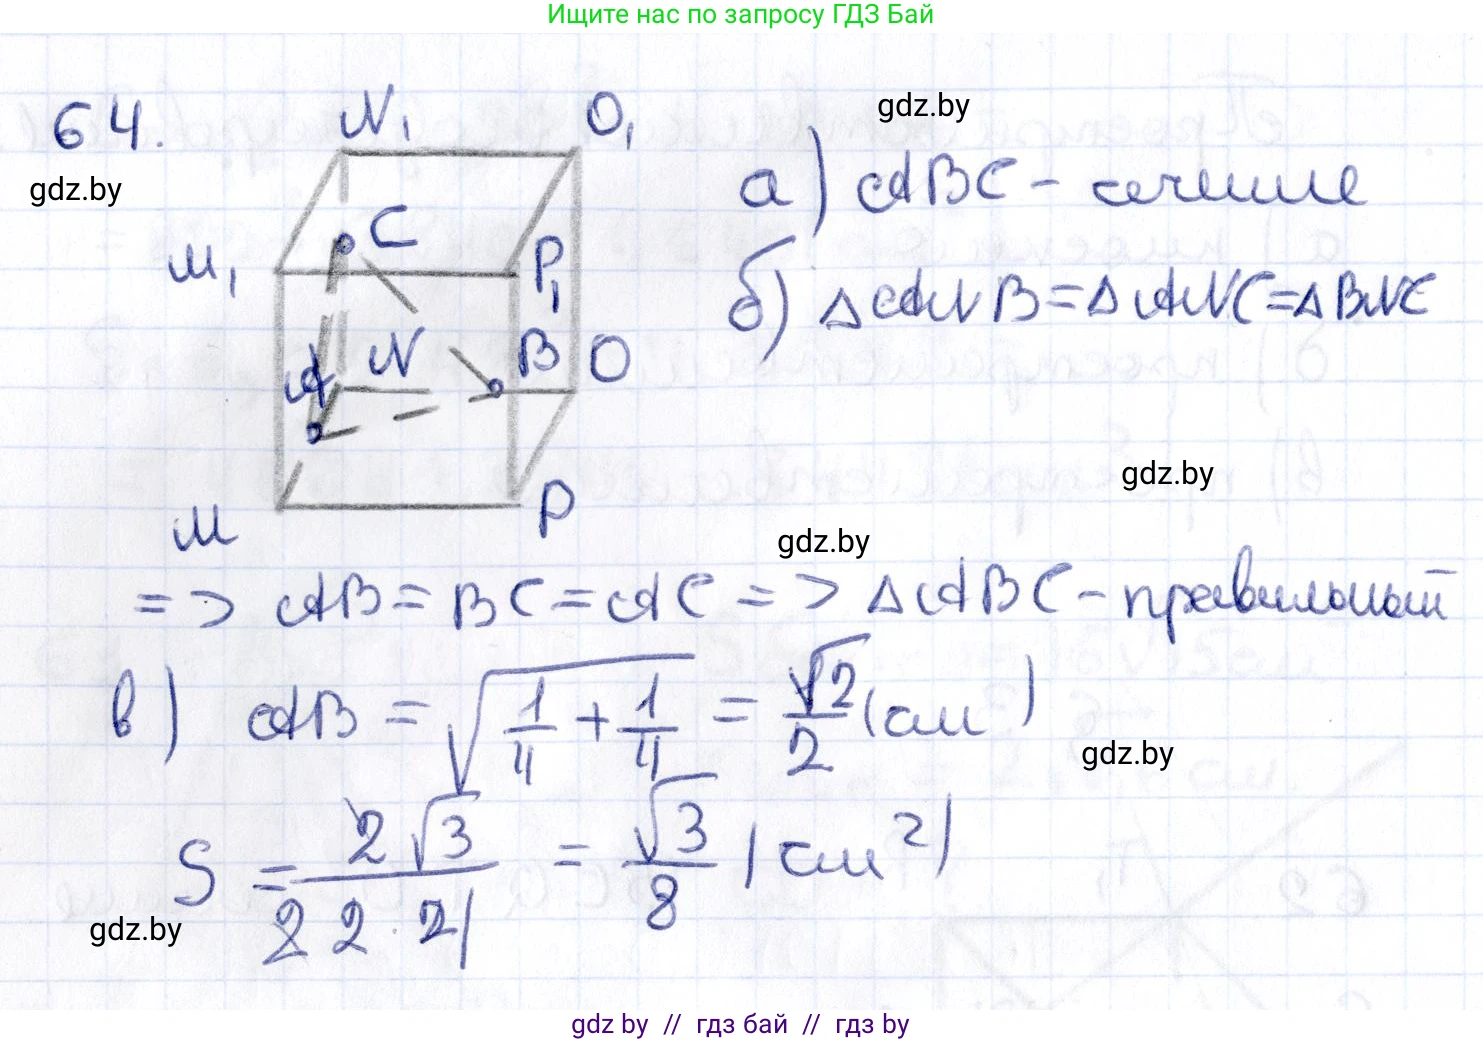 Ищите нас по запросу ГДЗ Бай
64.
gdz.by
N₁ O₁
gdz.by
C
M₁ P₁
A N B O
M P
а) ABC - сечение
б) △ANB = △ANC = △BNC
gdz.by
gdz.by
=> AB = BC = AC => △ABC - правильный
в) AB = √(1/4 + 1/4) = √2/2 (см)
gdz.by
S = 2√3/(2·2·2) = √3/8 (см²)
gdz.by
gdz by // гдз бай // гдз by